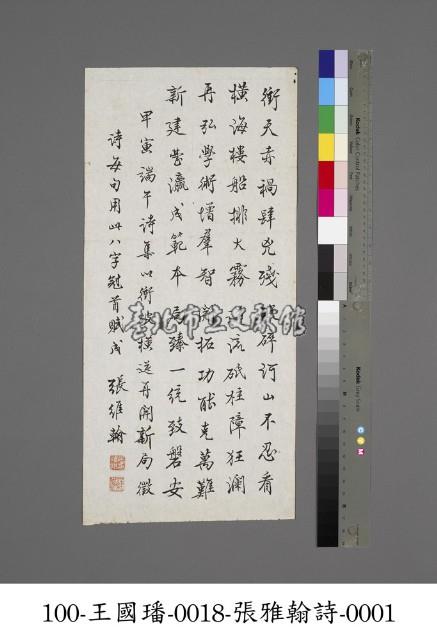 衝天赤禍肆兇殘破碎河山不忍看
橫海樓船排火霧逆流砥柱障狂瀾
再弘學術增羣智開拓功能克萬難
新建臺瀛成範本局臻一統致磐安
甲寅端午詩集以衝破橫逆再開新局徵
詩每句用此八字冠首賦成 張維翰
臺北市立文獻館
Kodak Color Control Patches
Kodak Gray Scale
C Y M
100-王國璠-0018-張雅翰詩-0001